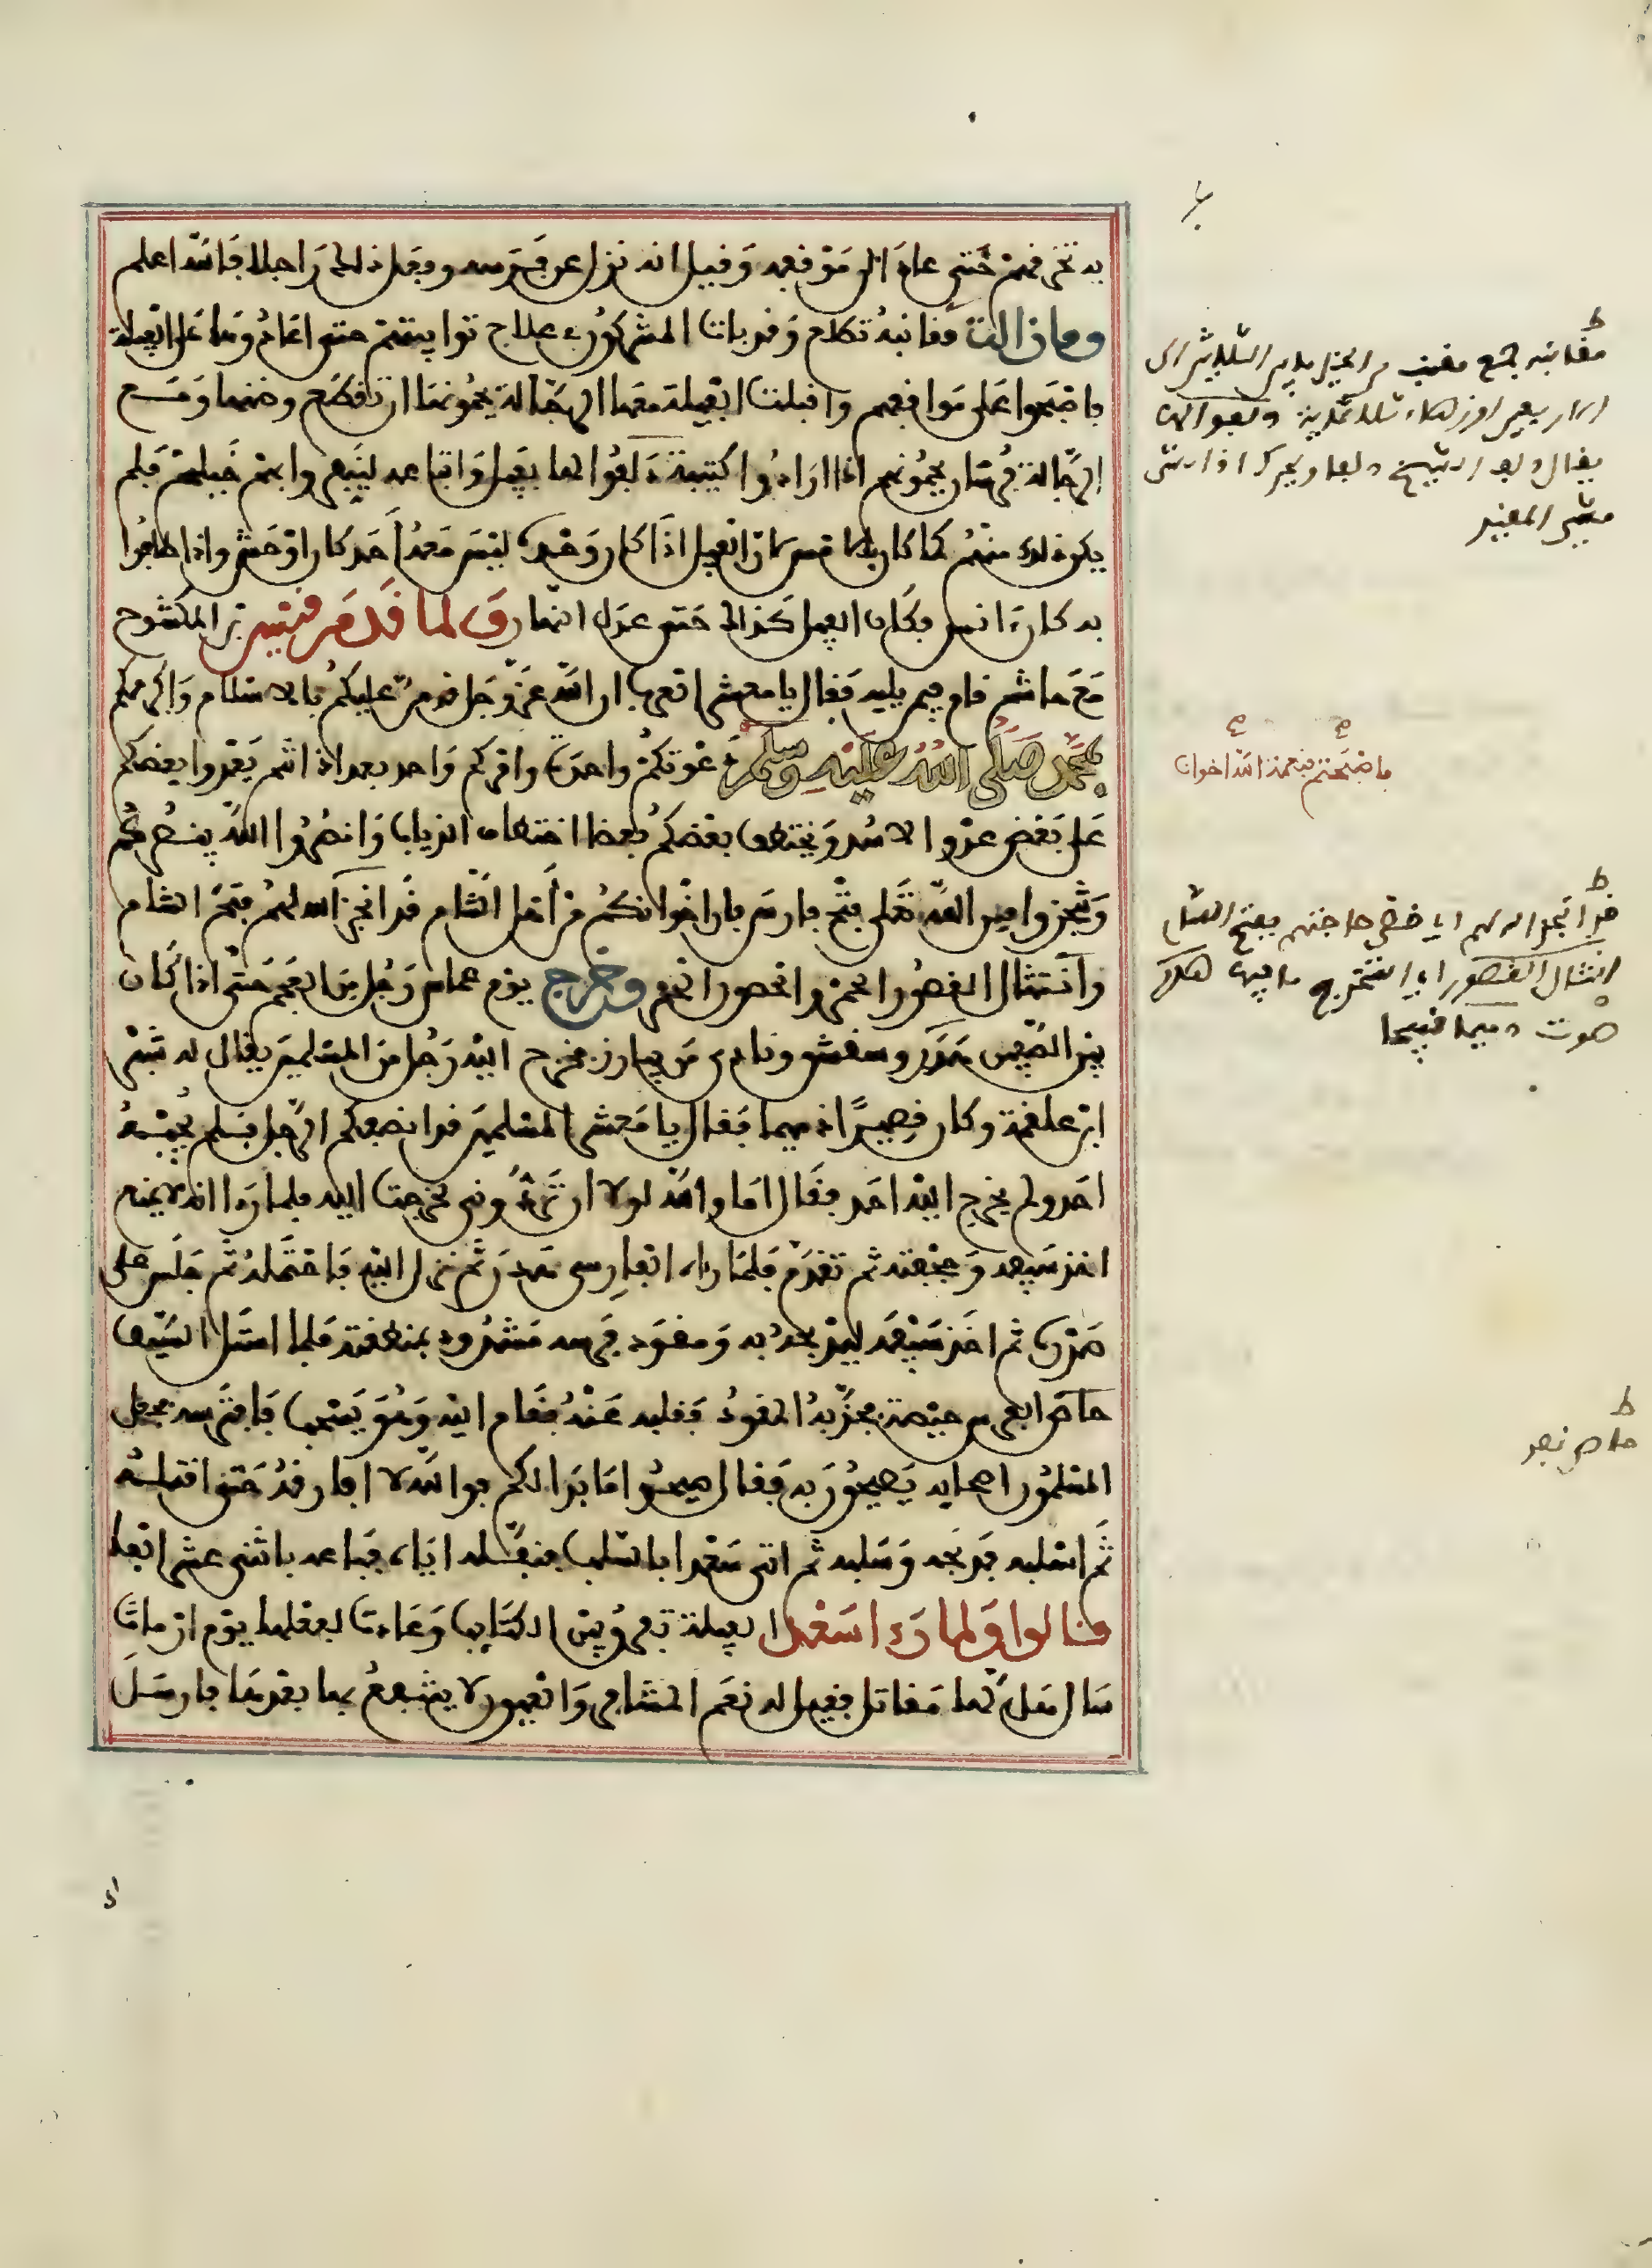 به تخرقهم حتى عاد الى موقفه وقيل انه نزل عن فرسه وفعل ذلك راجلا فالله اعلم
وما زالت مقانبه تطلع وقد بات المشركون في علاج توابيتهم حتى اعادوها على الفيلة
فاصبحوا على مواقفهم واقبلت الفيلة معها الرجالة يحمونها ان تقطع وضنها ومع
الرجالة فرسان يحمونهم اذا ارادوا كتيبة دلفوا لها بفيل واتباعه لينفروا بهم خيلهم فلم
يكن ذلك منهم كما كان بالامس لان الفيل اذا كان وحده ليس معه احد كان اوحش واذا اطافوا
به كان ءانس فكان الفيل كذلك حتى عدل النهار ولما قدم قيس بن المكشوح
مع هاشم قام فيمن يليه فقال يا معشر العرب ان الله عز وجل قد من عليكم بالاسلام واكرمكم
بمحمد صلى الله عليه وسلم دعوتكم واحدة وامركم واحد بعد اذ انتم يعدوا بعضكم
على بعض عدو الاسد ويختطف بعضكم بعضا اختطاف الذياب وانصروا الله ينصركم
وتنجزوا من الله تعلى فتح فارس فان اخوانكم من اهل الشام قد انجز الله لهم فتح الشام
وانتثال القصور الحمر والحصون الحمر وخرج يوم عماس رجل من العجم حتى اذا كان
بين الصفين هدر وشقشق ونادى من يبارز فخرج اليه رجل من المسلمين يقال له شبر
ابن علقمة وكان قصيرا دميما فقال يا معشر المسلمين قد انصفكم الرجل فلم يجبه
احد ولم يخرج اليه احد فقال اما والله لولا ان تزدروني لخرجت اليه فلما رءا انه لا يمنع
اخذ سيفه وحجفته ثم تقدم فلما راه الفارس هدر ثم نزل اليه فاحتمله ثم جلس على
صدره ثم اخذ سيفه ليذبحه به ومقود فرسه مشدود بمنطقته فلما استل السيف
حاص الفرس حيصة فجذبه المقود فقلبه عنه فقام اليه وهو يسحب فافترسه فجعل
المسلمون اصحابه يصيحون به فقال صيحوا ما بدا لكم فوالله لا افارقه حتى اقتله
ثم اسلبه فذبحه وسلبه ثم اتى سعدا بالسلب فنفله اياه فباعه باثني عشر الفا
قالوا ولما رءا سعد الفيلة تفرق بين الكتايب وعادت لفعلها يوم ارماث
سال هل لها مقاتل فقيل له نعم المشافر والعيون لا ينتفع بها بعدها فارسل
ط
مقانبه جمع مقنب من الخيل ما بين الثلاثين الى
الاربعين او زهاء ثلاثماية دلفوا اليها
يقال دلف الشيخ
مشي المقيد
فاصبحتم بنعمة الله اخوانا
ط
قد انجز الله لهم اي قضى حاجتهم بفتح الشام
انتثال القصور اي استخرج ما فيها هدر
صوت دميما قبيحا
ط
حاص نفر